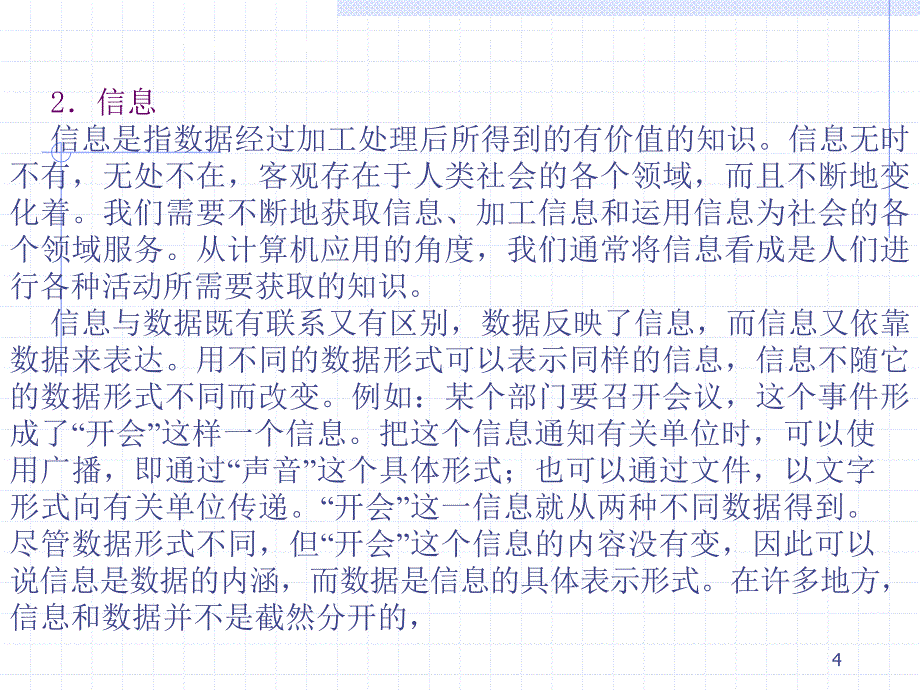 2．信息
信息是指数据经过加工处理后所得到的有价值的知识。信息无时
不有，无处不在，客观存在于人类社会的各个领域，而且不断地变
化着。我们需要不断地获取信息、加工信息和运用信息为社会的各
个领域服务。从计算机应用的角度，我们通常将信息看成是人们进
行各种活动所需要获取的知识。
信息与数据既有联系又有区别，数据反映了信息，而信息又依靠
数据来表达。用不同的数据形式可以表示同样的信息，信息不随它
的数据形式不同而改变。例如：某个部门要召开会议，这个事件形
成了“开会”这样一个信息。把这个信息通知有关单位时，可以使
用广播，即通过“声音”这个具体形式；也可以通过文件，以文字
形式向有关单位传递。“开会”这一信息就从两种不同数据得到。
尽管数据形式不同，但“开会”这个信息的内容没有变，因此可以
说信息是数据的内涵，而数据是信息的具体表示形式。在许多地方，
信息和数据并不是截然分开的，
4